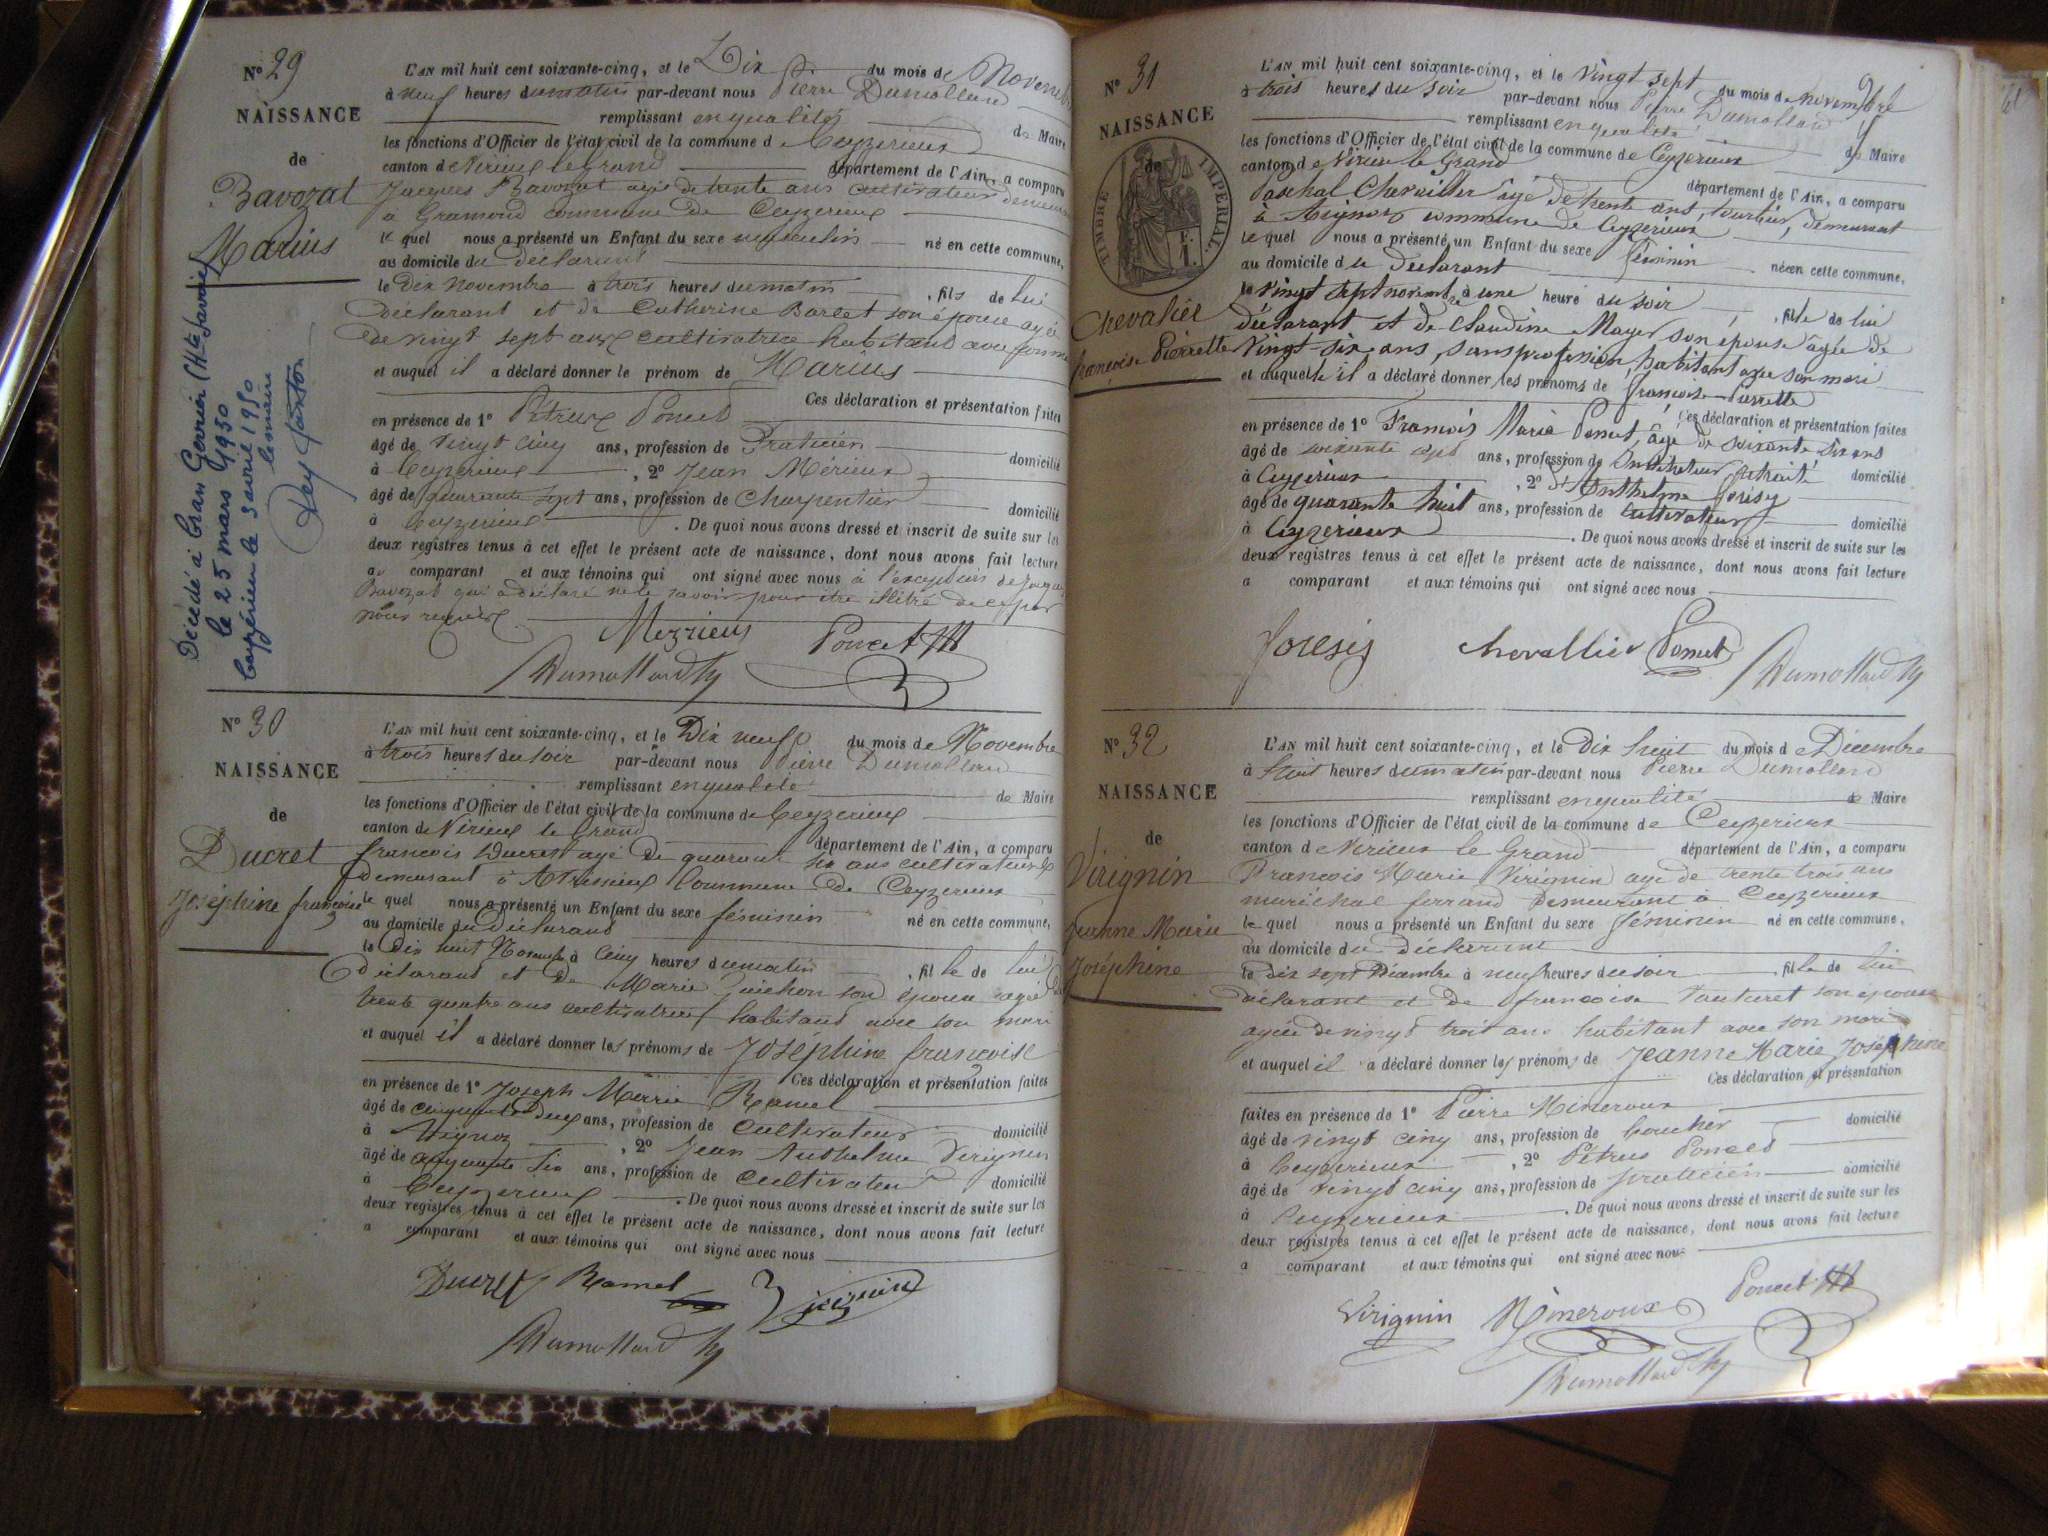 N° 29
NAISSANCE
de
Bavozat
Marius
Décédé à Cran Gevrier (Hte Savoie)
le 25 mars 1950
Ceyzérieu le 3 avril 1950
le maire
L'AN mil huit cent soixante-cinq, et le Dix du mois de Novembre
à neuf heures du matin par-devant nous Pierre Dumollard
remplissant en qualité de Maire
les fonctions d'Officier de l'état civil de la commune d Ceyzerieux
canton de Virieux le Grand département de l'Ain, a comparu
Jacques Bavozat agé de trente ans cultivateur demeurant
à Gramond commune de Ceyzerieux
le quel nous a présenté un Enfant du sexe masculin né en cette commune,
au domicile du déclarant
le Dix novembre à trois heures du matin, fils de lui
déclarant et de Catherine Barcet son épouse agée
de vingt sept ans cultivatrice habitant avec
et auquel il a déclaré donner le prénom de Marius
Ces déclaration et présentation faites
en présence de 1° Pétrus Poncet
âgé de vingt cinq ans, profession de Praticien domicilié
à Ceyzerieux, 2° Jean Mérieux
âgé de quarante sept ans, profession de Charpentier domicilié
à Ceyzerieux. De quoi nous avons dressé et inscrit de suite sur les
deux registres tenus à cet effet le présent acte de naissance, dont nous avons fait lecture
au comparant et aux témoins qui ont signé avec nous à l'exception de Jacques
Bavozat qui a déclaré ne le savoir pour être illitré de ce par
nous requis
Mezrieux Poncet
Dumollard
N° 30
NAISSANCE
de
Ducret
Joséphine françoise
L'AN mil huit cent soixante-cinq, et le Dix neuf du mois de Novembre
à trois heures du soir par-devant nous Pierre Dumollard
remplissant en qualité de Maire
les fonctions d'Officier de l'état civil de la commune de Ceyzerieux
canton de Virieux le Grand département de l'Ain, a comparu
francois Ducret agé de quarante six ans cultivateur
demeurant à Avrissieux Commune de Ceyzerieux
le quel nous a présenté un Enfant du sexe féminin né en cette commune,
au domicile du déclarant
le Dix huit Novembre à cinq heures du matin, fille de lui
déclarant et de Marie Juichon son épouse agée de
trente quatre ans cultivatrice habitant avec son mari
et auquel il a déclaré donner les prénoms de Joséphine françoise
Ces déclaration et présentation faites
en présence de 1° Joseph Marie Ramel
âgé de cinquante deux ans, profession de cultivateur domicilié
à Aignoz, 2° Jean Anthelme Virignin
âgé de cinquante six ans, profession de cultivateur domicilié
à Ceyzerieux. De quoi nous avons dressé et inscrit de suite sur les
deux registres tenus à cet effet le présent acte de naissance, dont nous avons fait lecture
a comparant et aux témoins qui ont signé avec nous
Ducret Ramel Virignin
Dumollard
61
N° 31
NAISSANCE
de
TIMBRE IMPÉRIAL.
Chevalier
françoise Pierrette
L'AN mil huit cent soixante-cinq, et le vingt sept du mois de novembre
à trois heures du soir par-devant nous Pierre Dumollard
remplissant en qualité de Maire
les fonctions d'Officier de l'état civil de la commune de Ceyzerieux
canton de Virieu le Grand département de l'Ain, a comparu
Paschal Chevallier âgé de trente ans, tourbier, demeurant
à Aignoz commune de Ceyzerieux
le quel nous a présenté un Enfant du sexe féminin née en cette commune,
au domicile du déclarant
le vingt sept novembre à une heure du soir, fille de lui
déclarant et de Claudine Mayer son épouse âgée de
vingt-six ans, sans profession, habitant avec son mari
et auquelle il a déclaré donner les prénoms de françoise Pierrette
Ces déclaration et présentation faites
en présence de 1° François Marie Poncet, âgé de soixante six ans
âgé de soixante ans, profession de Instituteur retraité domicilié
à Ceyzerieux, 2° Anthelme Joresy
âgé de quarante huit ans, profession de cultivateur domicilié
à Ceyzerieux. De quoi nous avons dressé et inscrit de suite sur les
deux registres tenus à cet effet le présent acte de naissance, dont nous avons fait lecture
a comparant et aux témoins qui ont signé avec nous
Joresis Chevallier Poncet
Dumollard
N° 32
NAISSANCE
de
Virignin
Jeanne Marie
Joséphine
L'AN mil huit cent soixante-cinq, et le Dix huit du mois de Décembre
à huit heures du matin par-devant nous Pierre Dumollard
remplissant en qualité de Maire
les fonctions d'Officier de l'état civil de la commune de Ceyzerieux
canton de Virieux le Grand département de l'Ain, a comparu
Francois Marie Virignin agé de trente trois ans
maréchal ferrand demeurant à Ceyzerieux
le quel nous a présenté un Enfant du sexe féminin né en cette commune,
au domicile du déclarant
le dix sept Décembre à neuf heures du soir, fille de lui
déclarant et de françoise Tauturet son épouse
agée de vingt trois ans habitant avec son mari
et auquel il a déclaré donner les prénoms de Jeanne Marie Joséphine
Ces déclaration et présentation
faites en présence de 1° Pierre Mineroux
âgé de vingt cinq ans, profession de boucher domicilié
à Ceyzerieux, 2° Pétrus Poncet
âgé de vingt cinq ans, profession de praticien domicilié
à Ceyzerieux. De quoi nous avons dressé et inscrit de suite sur les
deux registres tenus à cet effet le présent acte de naissance, dont nous avons fait lecture
a comparant et aux témoins qui ont signé avec nous
Virignin Mineroux Poncet
Dumollard